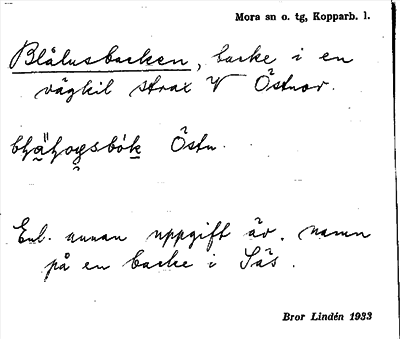 Mora sn o. tg, Kopparb. l.
Blålusbacken, backe i en
vägkil strax V Östnor.
Östn.
Enl. annan uppgift äv. namn
på en backe i Säs.
Bror Lindén 1933